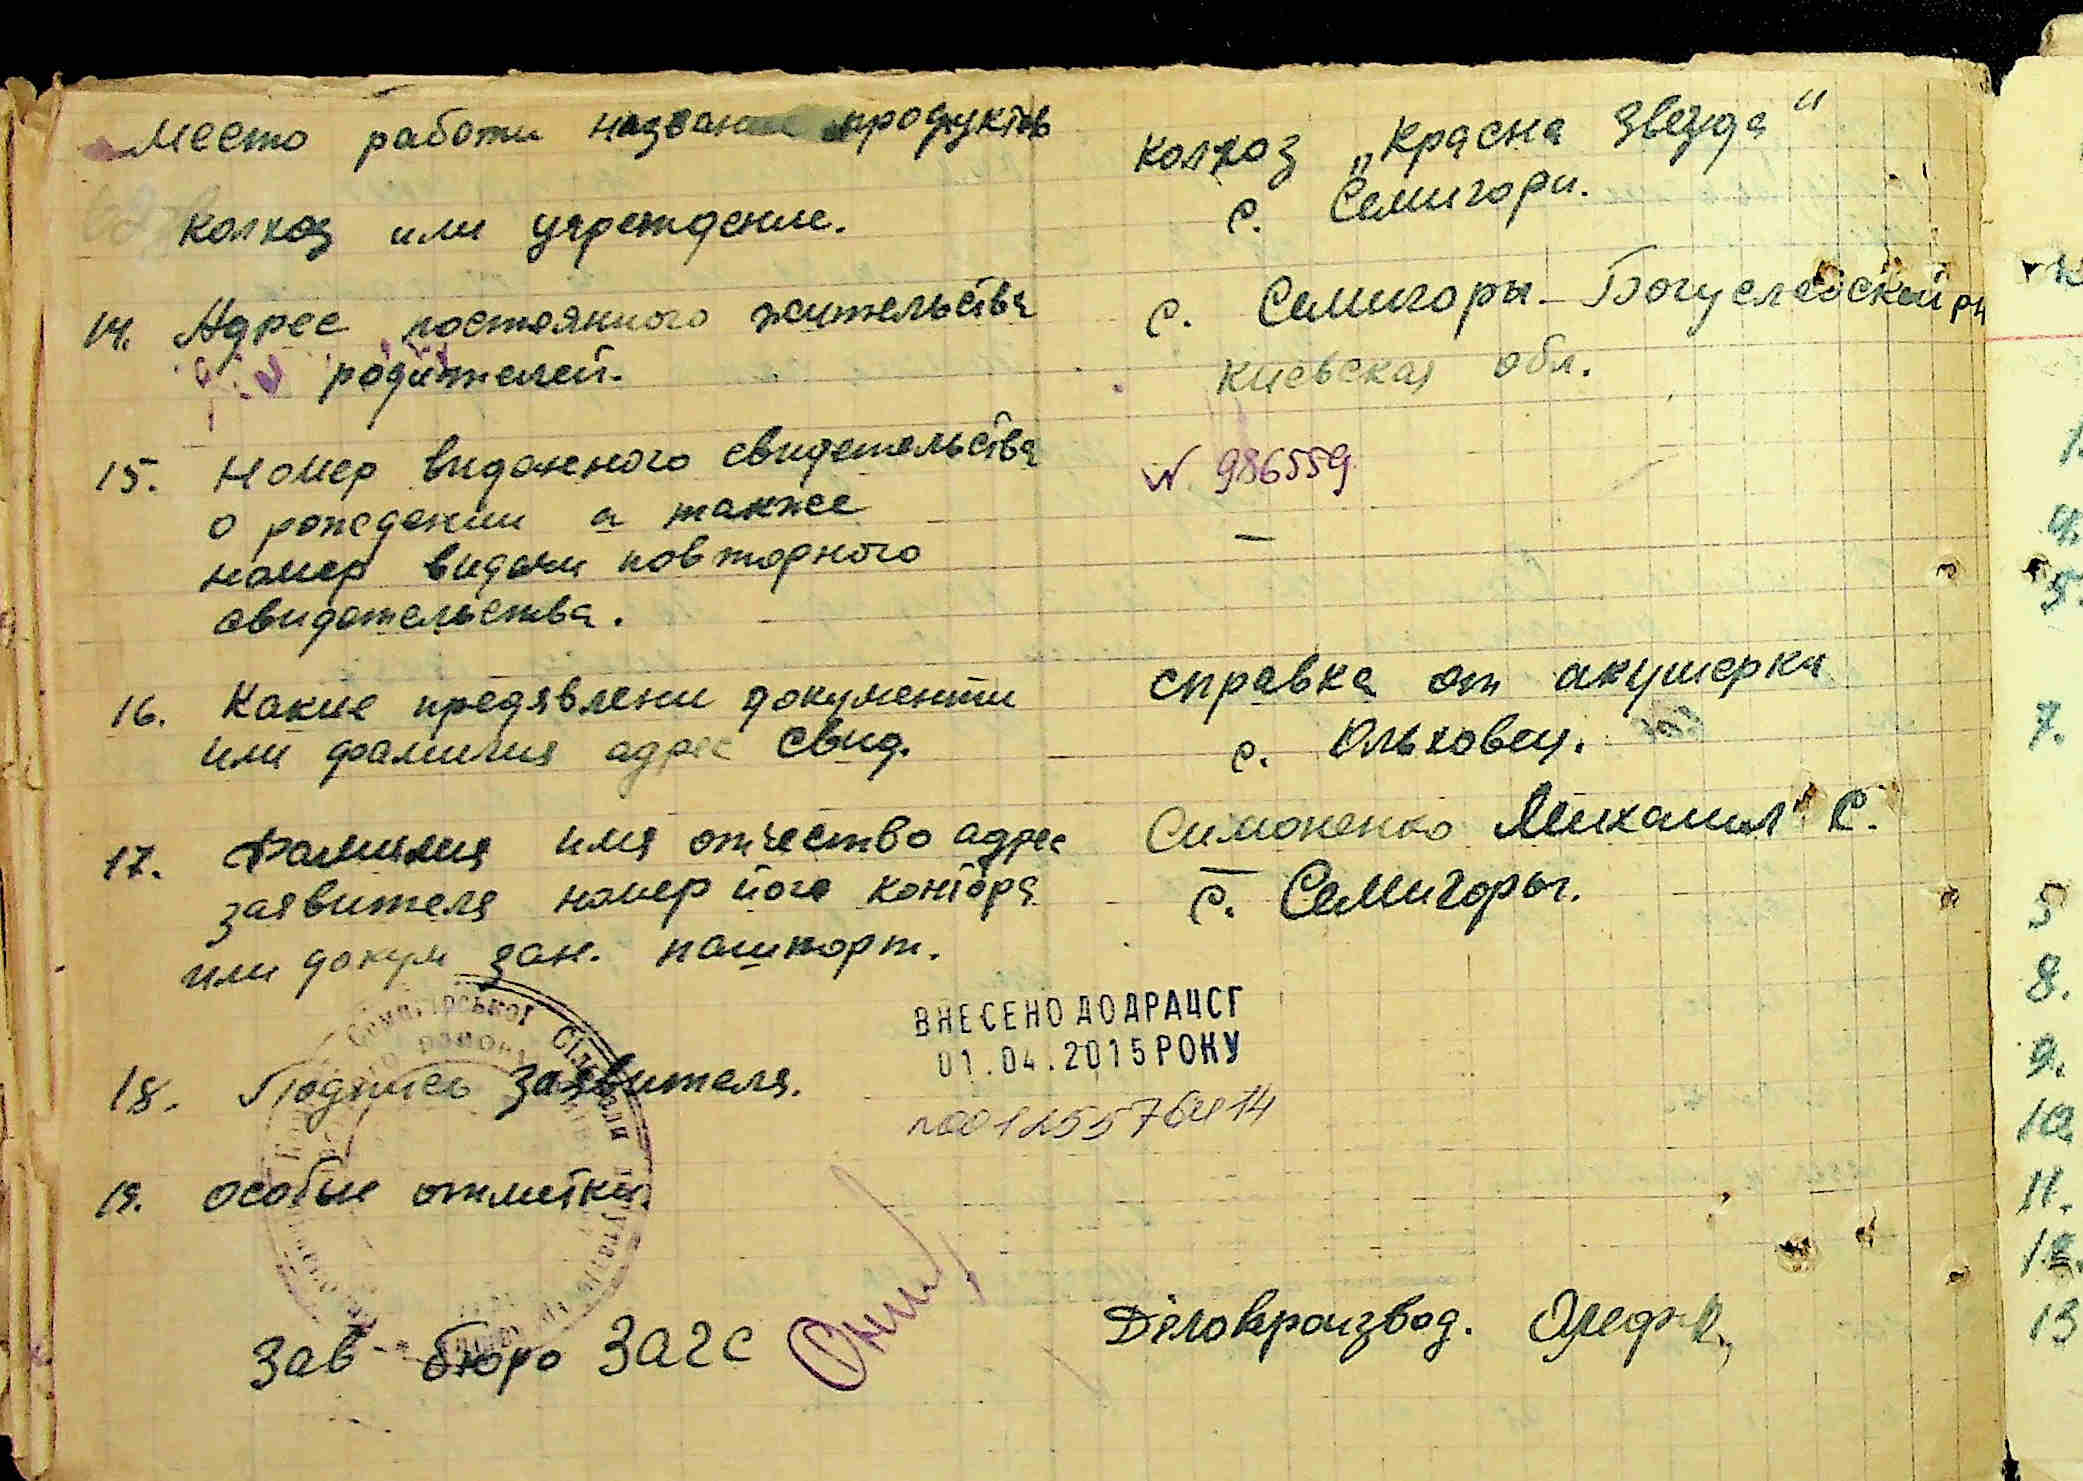 Место работи название продуктов
колхоз „Красна Звезда“
с. Семигори.
колхоз или учреждение.
14. Адрес постоянного жительства
родителей.
с. Семигоры Богуславской рн
Киевская обл.
15. Номер виданного свидетельства
о рождении а также
номер видачи повторного
свидетельства.
N 986559
—
16. Какие предявлени документи
или фамилия адрес свид.
справка от акушерки
с. Ольховец.
17. Фамилия имя отчество адрес
заявителя номер його контора
или докум зан. пашпорт.
Симоненко Михаил С.
с. Семигоры.
ВНЕСЕНО ДО ДРАЦСГ
01.04.2015 РОКУ
18. Подпись заявителя.
19. особые отметки
Зав бюро ЗАГС
Діловпроизвод.
14.
5.
7.
5
8.
9.
10
11.
12.
13